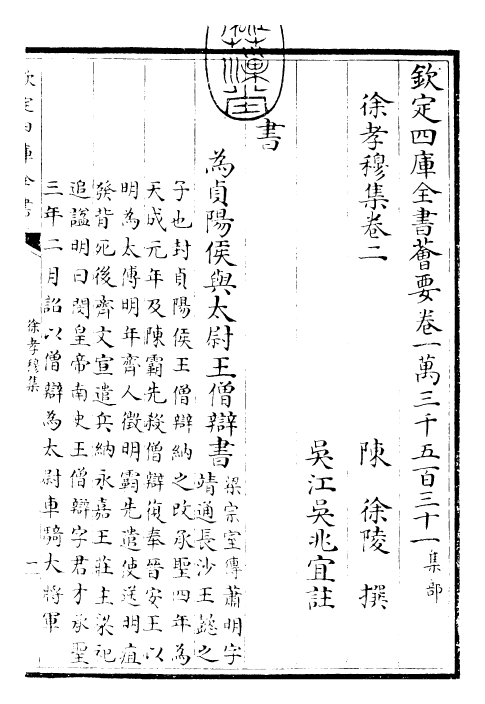 欽定四庫全書薈要卷一萬三千五百三十一集部
徐孝穆集卷二
陳 徐陵 撰
吳江吳兆宜註
書
為貞陽侯與太尉王僧辯書
梁宗室傳蕭明字
靖通長沙王懿之
子也封貞陽侯王僧辯納之改承聖四年為
天成元年及陳霸先殺僧辯復奉晉安王以
明為太傅明年齊人徵明霸先遣使送明疽
發背死後齊文宣遣兵納永嘉王莊主梁祀
追謚明曰閔皇帝南史王僧辯字君才承聖
三年二月詔以僧辯為太尉車騎大將軍
欽定四庫全書
徐孝穆集
一